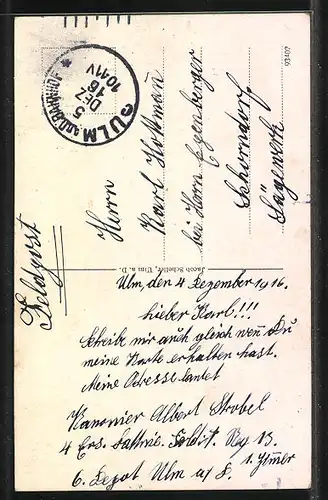 Feldpost
ULM a/D BAHNHOF
5
DEZ
16
10-11V
Herrn
Karl Hottmann
bei Herrn Egenberger
Schorndorf
Sägewerk
93407
Jacob Schaller, Ulm a. D.
Ulm den 4 Dezember 1916.
Lieber Karl!!!
Schreibe mir auch gleich wenn Du
meine Karte erhalten hast.
Meine Adresse lautet
Kanonier Albert Strobel
4 Ers. Battrie. Reg 13.
6. Depot Ulm a/